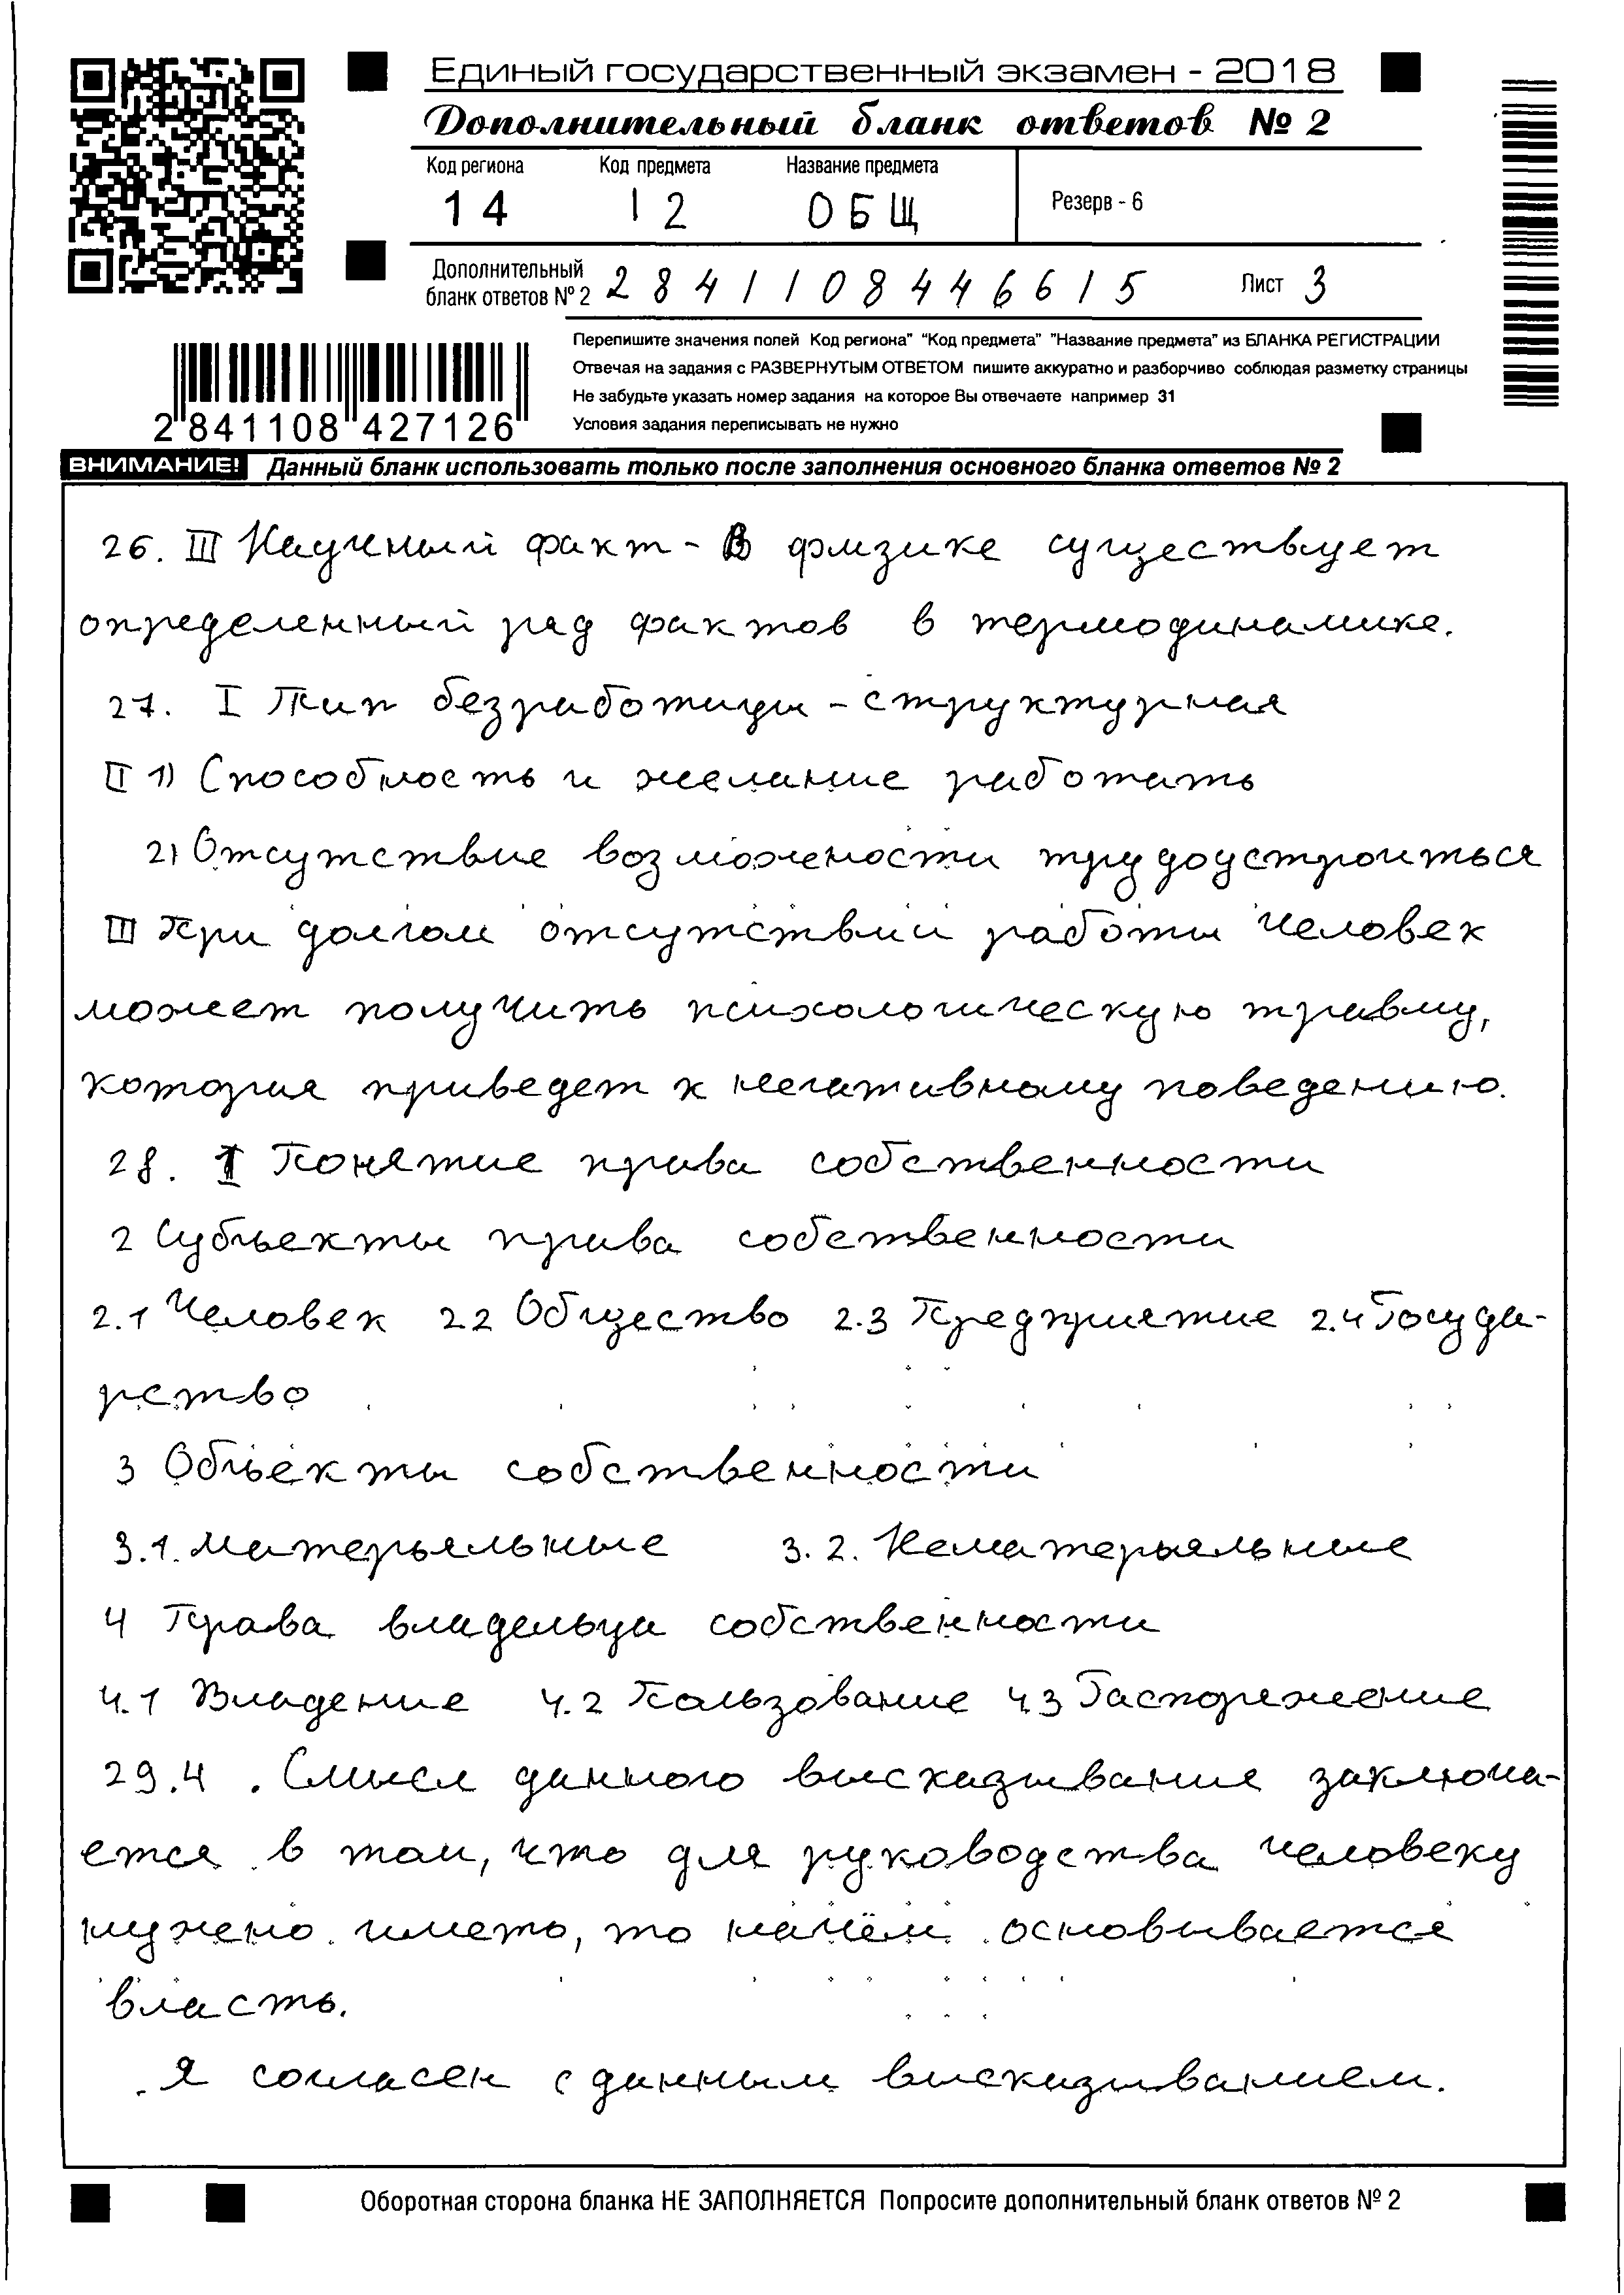 Единый государственный экзамен - 2018
Дополнительный бланк ответов № 2
Код региона Код предмета Название предмета
14 12 ОБЩ Резерв - 6
Дополнительный
бланк ответов № 2 2841108446615 Лист 3
Перепишите значения полей Код региона" "Код предмета" "Название предмета" из БЛАНКА РЕГИСТРАЦИИ
Отвечая на задания с РАЗВЕРНУТЫМ ОТВЕТОМ пишите аккуратно и разборчиво соблюдая разметку страницы
Не забудьте указать номер задания на которое Вы отвечаете например 31
Условия задания переписывать не нужно
2 841108 427126
ВНИМАНИЕ! Данный бланк использовать только после заполнения основного бланка ответов № 2
26. III Научный факт - В физике существует
определенный ряд фактов в термодинамике.
27. I Тип безработицы - структурная
II 1) Способность и желание работать
2) Отсутствие возможности трудоустроиться
III При долгом отсутствии работы человек
может получить психологическую травму,
которая приведет к негативному поведению.
28. 1 Понятие права собственности
2 Субъекты права собственности
2.1 Человек 2.2 Общество 2.3 Предприятие 2.4 Госуда-
рство
3 Объекты собственности
3.1. Матерьяльные 3.2. Нематерьяльные
4 Права владельца собственности
4.1 Владение 4.2 Пользование 4.3 Распоряжение
29.4. Смысл данного высказывания заключа-
ется в том, что для руководства человеку
нужно иметь, то на чём основывается
власть.
Я согласен с данным высказыванием.
Оборотная сторона бланка НЕ ЗАПОЛНЯЕТСЯ Попросите дополнительный бланк ответов № 2